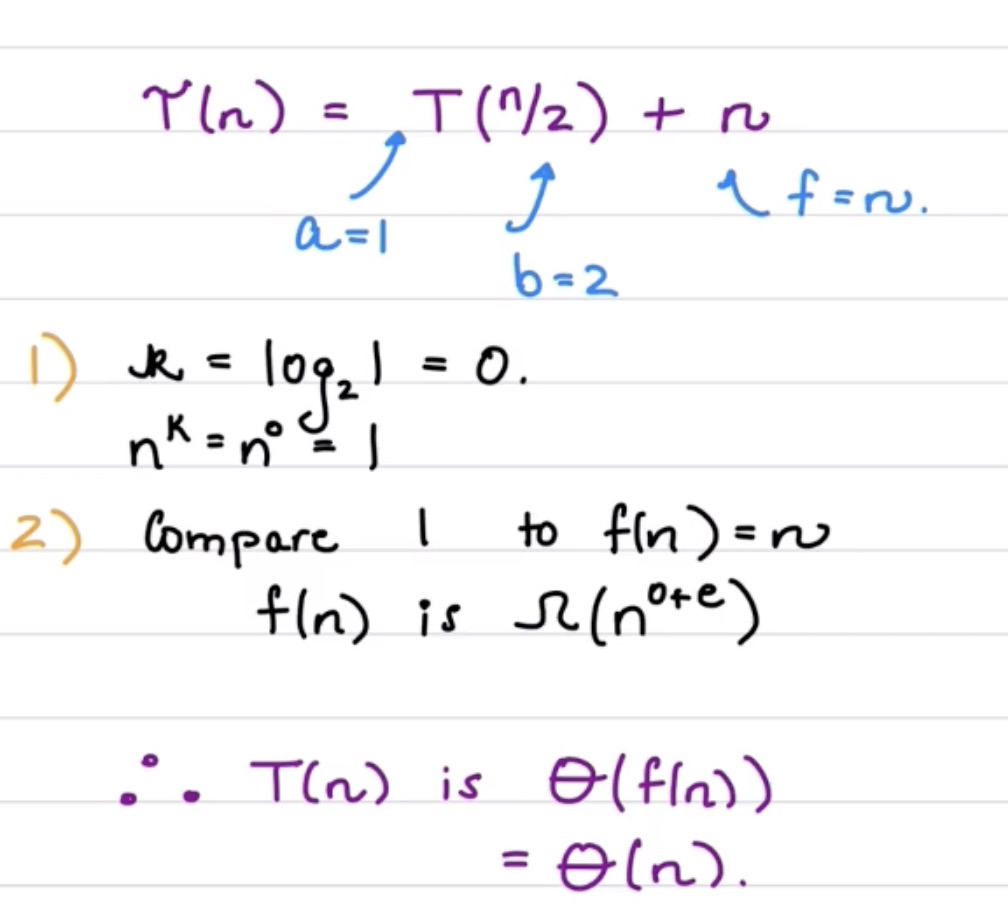 T(n) = T(n/2) + n
a=1
b=2
f=n.
1) k = log₂1 = 0.
nᴷ = n⁰ = 1
2) Compare 1 to f(n)=n
f(n) is Ω(n⁰⁺ᵉ)
∴ T(n) is Θ(f(n))
= Θ(n).